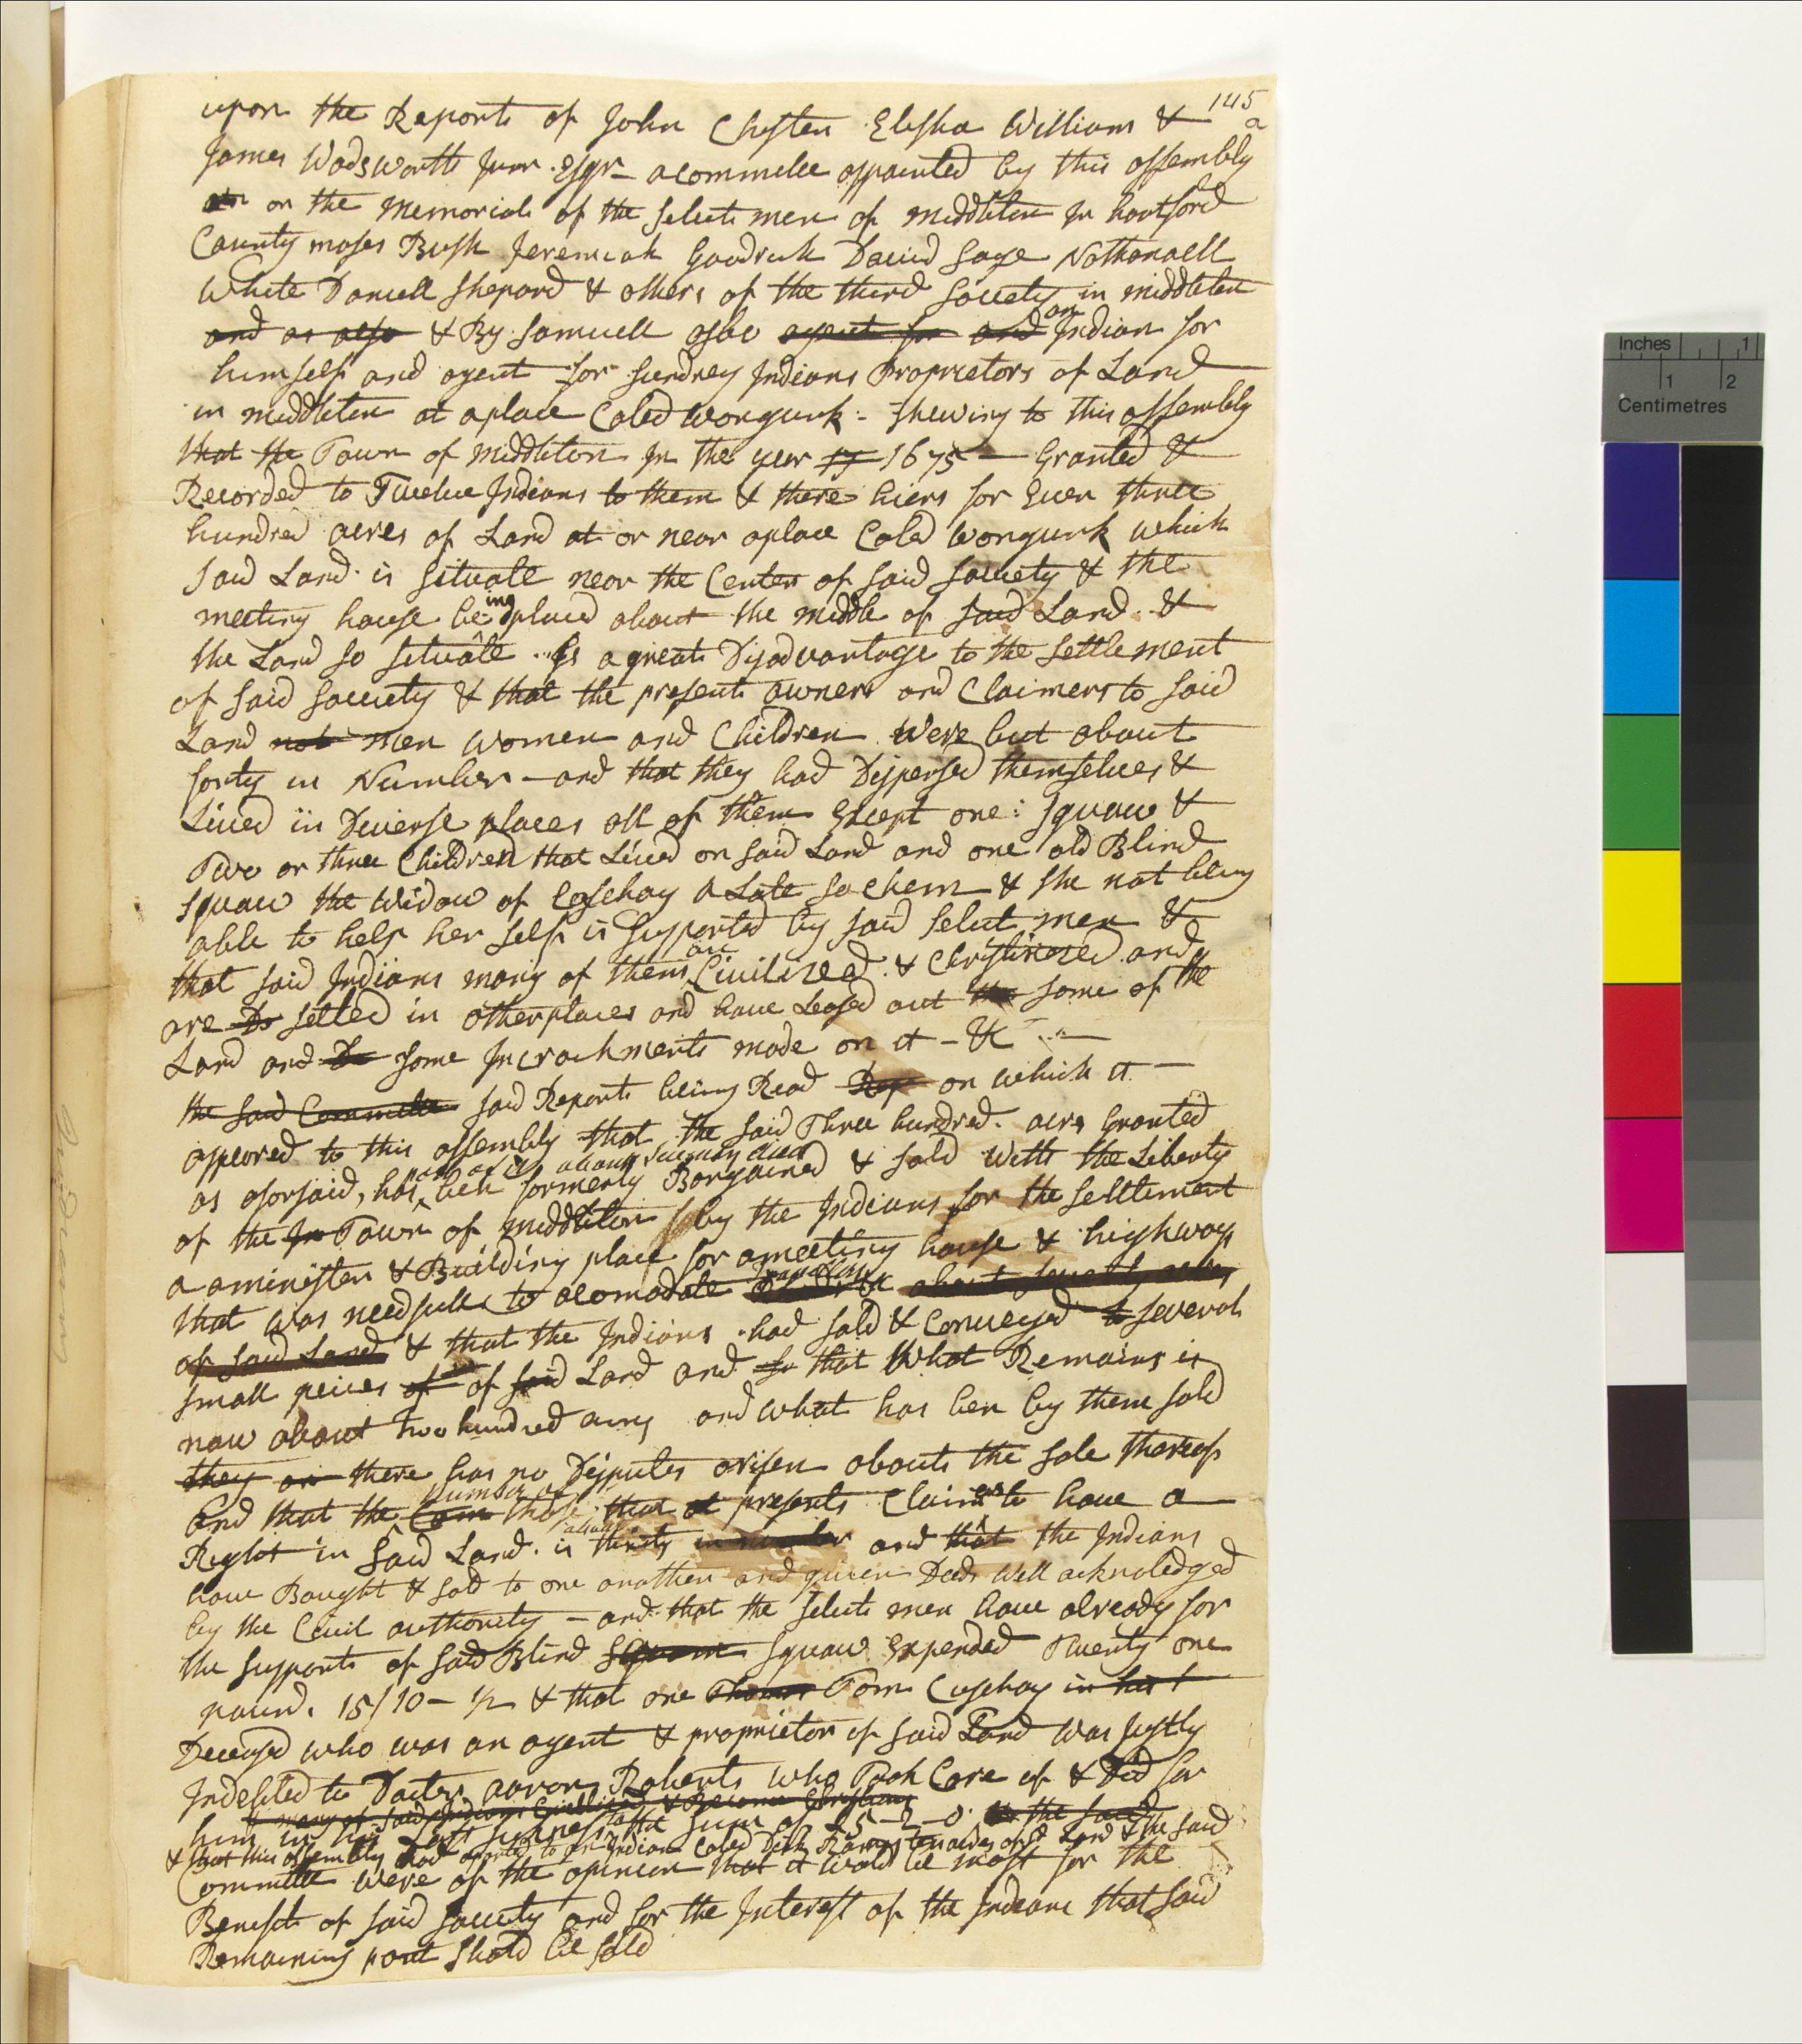 145
a
upon the Report of John Chester Elisha William &
James Wadsworth Junr. Esqr - a commitee appainted by this assembly
on the memorial of the select men of middleton In hartford
County moses Bush Jeremiah Goodrich David Sage Nathanaell
White Daniell Shepard & others of the third Society in middleton
and as also & By Samuell asbo agent for and an Indian for
himself and agent for sundrey Indians Proprietors of Land
in middleton at a place Caled wongunk - shewing to this assembly
that the Town of middleton In the year 17 1675 - Granted &
Recorded to Twelve Indians to them & there hiers for Ever three
hundred acres of Land at or near a place Caled wongunk which
said Land is situate near the Center of said society & the
meeting house being placed about the middle of said Land &
the Land so situate Is a great Disadvantage to the settlement
of said society & that the present owners and Claimers to said
Land not men women and Children were but about
forty in Number - and that they had Dispersed themselves &
Lived in Diverse places all of them Except one squaw &
Two or three Children that Lived on said Land and one old Blind
squaw the widow of Cushoy a Late sachem & she not being
able to help her self is supported by said select men &
that said Indians many of them are Civilized & Christinized and
are settled in other places and have Leased out some of the
Land and some Incrachments made on it - &c
the said Committee said Report being Read Rep on which it
appeared to this assembly that the said Three hundred acres Granted
as aforsaid, has been formerly Bargained & sold with the Liberty
of the In Town of middleton by the Indians for the settlement
a a minister & Building place for a meeting house & highways
that was needfull to acomodate Travallers about seventy acres
of said Land & that the Indians had sold & Conveyed to several
small peices of of said Land and so that what Remains is
now about two hundred acres and what has ben by them sold
they on there has no Disputes arisen about the sale thereof
And that the Com number of those that at present Claim to have a
Right in said Land is about thirty in number and that the Indians
have Bought & sold to one another and given Deeds well acknoledged
by the Civil authority - and that the select men have already for
the support of said Blind squaw Expended Twenty one
pound. 15/10 - 1/2 & that one Thomas Tom Cushoy in his l
Deceased who was an agent & proprietor of said Land was justly
Indebted to Docter aaron Roberts who Took Care of & Did for
many of said Indians Civillized & Become Christians
him in his Last sickness to the sum of 25-2-0 to the said
& that this assembly had to an Indian Caled & the said
Committee were of the opinion that it would be most for the
Benefit of said society and for the Interest of the Indians that said
Remaining part should be sold
Inches 1
1 2
Centimetres